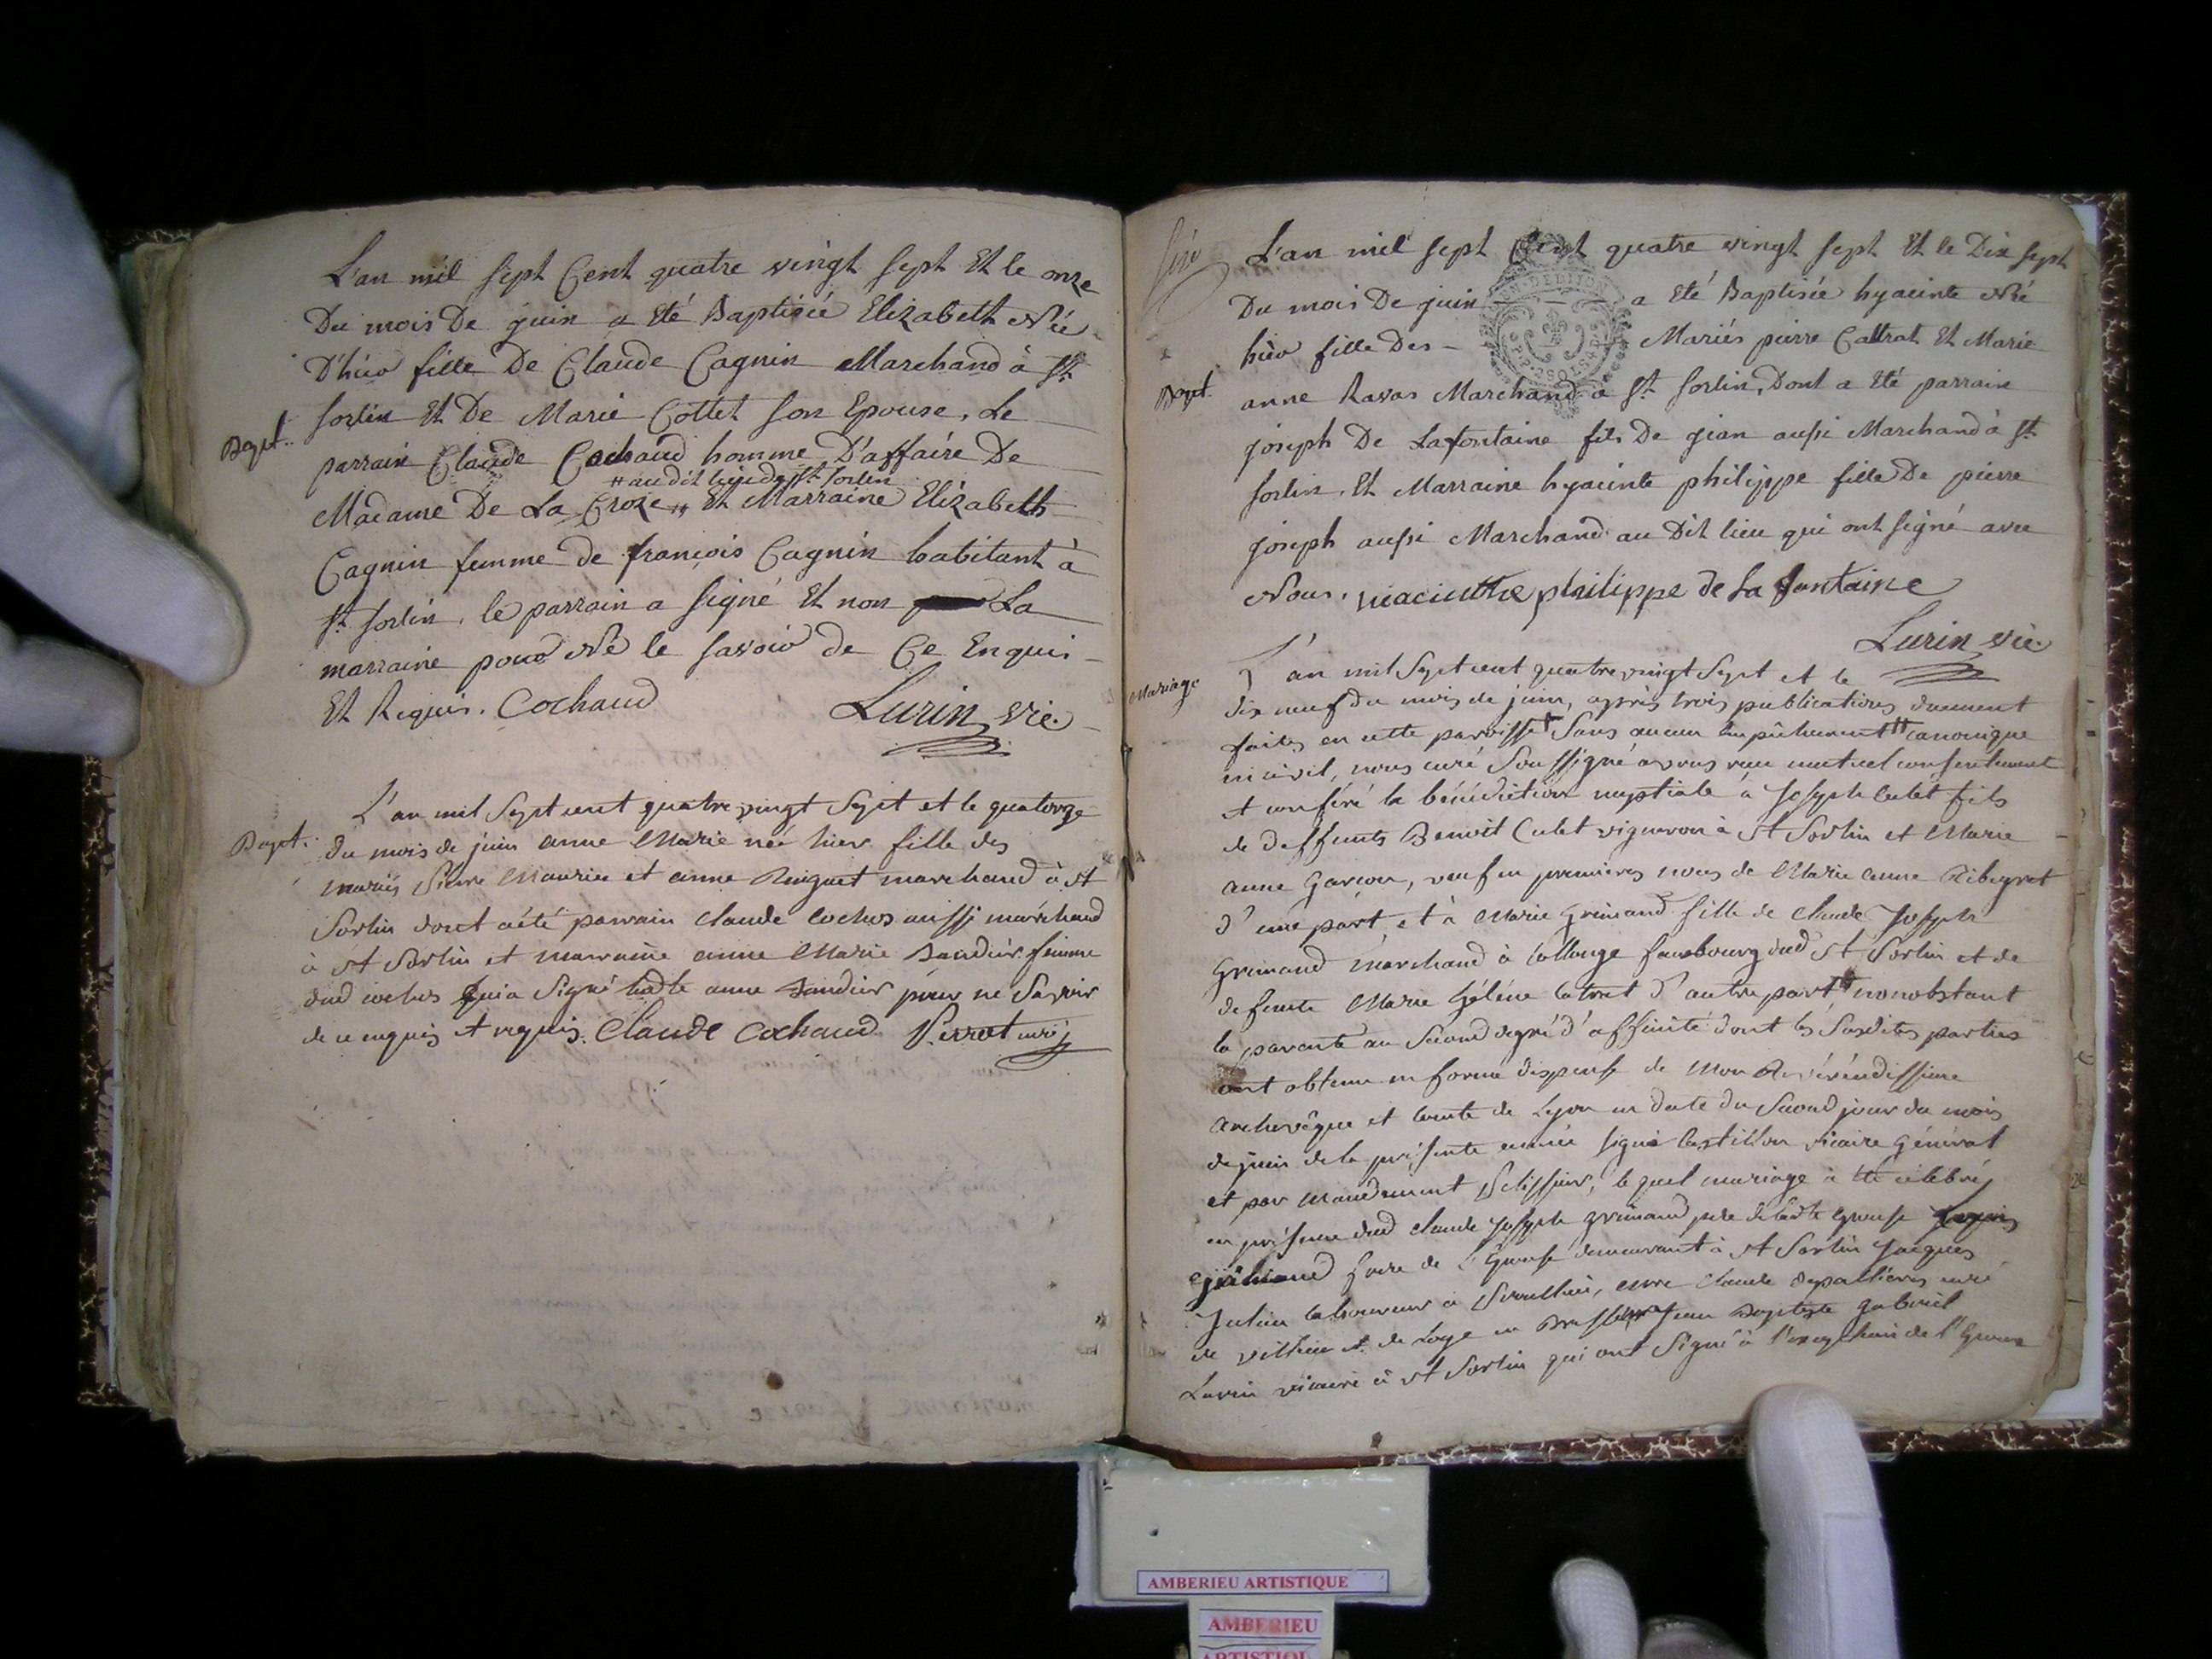 L'an mil sept Cent quatre vingt sept Et le onze
Du mois De juin a Eté Baptisée Elizabeth Née
D'hier fille De Claude Cagnin Marchand à St
Sorlin Et De Marie Cottet son Epouse, Le
Bapt..
parrain Claude Cochaud homme D'affaire De
# au dit lieu de St Sorlin
Madame De La Croze # Et Marraine Elizabeth
Cagnin femme de françois Cagnin habitant à
St Sorlin, le parrain a signé Et non La
marraine pour Ne le savoir de Ce Enquis
Et Requis. Cochaud Lurin vic.
L'an mil Sept cent quatre vingt Sept et le quatorze
Bapt.
du mois de juin anne Marie née hier fille des
mariés Pierre Maurier et anne Ringuet marchand à st
Sorlin dont a été parrain Claude Cochos aussi marchand
à st Sorlin et marraine anne Marie femme
dud cochos qui a Signé ladte anne pour ne Savoir
de ce enquis et requis. Claude Cochaud Perrot curé
L'an mil sept Cent quatre vingt sept Et le Dix sept
Du mois De juin a Eté Baptisée hyacinte Née
hier fille Des Mariés pierre Cattrat Et Marie
Bapt.
anne Ravas Marchand à St Sorlin, Dont a Eté parrain
joseph De Lafontaine fils De jean aussi Marchand à St
Sorlin. Et Marraine hyacinte philippe fille De pierre
joseph aussi Marchand au Dit lieu qui ont signé avec
Nous. hiacinthe philippe de la fontaine
Lurin vic.
Mariage
L'an mil Sept cent quatre vingt Sept et le
dix neuf du mois de juin, après trois publications duement
faites en cette paroisse Sans aucun empêchement canonique
ni civil, nous curé Soussigné avons reçu mutuel consentement
et conféré la bénédiction nuptiale à Joseph Culet fils
de deffunts Benoit Culet vigneron à st Sorlin et Marie
anne Garçon, veuf en premières noces de Marie anne Ribeyret
d'une part, et à Marie Grimand fille de Claude Joseph
Grimand marchand à Collonge fauxbourg dud St Sorlin et de
defunte Marie Hélène Catrat d'autre part nonobstant
la parenté au Second degré d'affinité dont les Susdites parties
ont obtenu en forme dispense de Mon Révérendissime
archevêque et Comte de Lyon en date du Second jour du mois
de juin de la présente année signé Castillon vicaire général
et par mandement, le quel mariage a été célébré
en présence dud Claude Joseph Grimand père de ladte Epouse
frere de l'Epouse demeurant à st Sorlin Jacques
Julien laboureur à, claude curé
de Villieu et de Loye en Jean Baptiste Gabriel
Lurin vicaire à st Sorlin qui ont Signé à l'exception de l'Epouse
AMBERIEU ARTISTIQUE
AMBERIEU
ARTISTIQUE